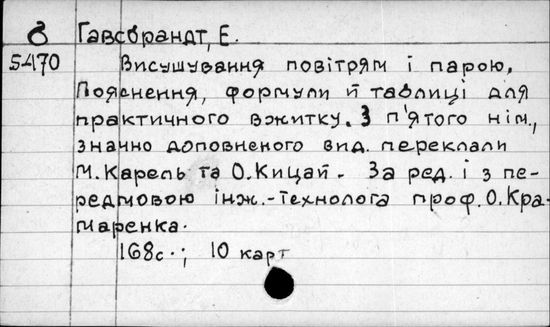 8 Гавсбрандт, Е.
5470 Висушування повітрям і парою,
Пояснення, формули й таблиці для
практичного вжитку. З п'ятого нім.,
значно доповненого вид. переклали
М. Карель та О. Кицай - За ред. і з пе-
редмовою інж.-технолога проф. О. Кра-
маренка.
168с.; 10 карт